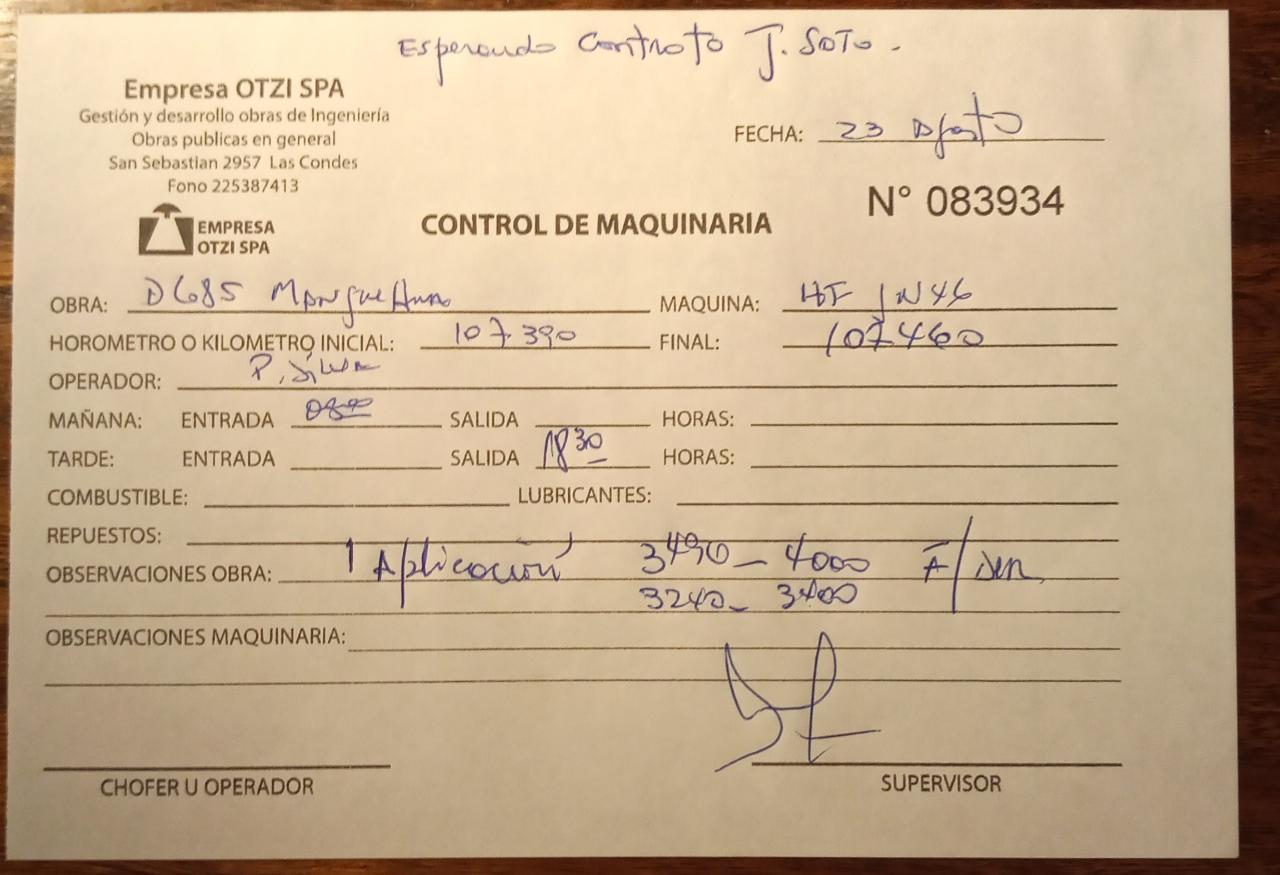 Esperando Contrato J. Soto.-
Empresa OTZI SPA
Gestión y desarrollo obras de Ingeniería
Obras publicas en general
San Sebastian 2957 Las Condes
Fono 225387413
EMPRESA
OTZI SPA
FECHA: 23 Agosto
N° 083934
CONTROL DE MAQUINARIA
OBRA: D685 MAQUINA:
HOROMETRO O KILOMETRO INICIAL: 107.390 FINAL: 107460
OPERADOR: P. Silva
MAÑANA: ENTRADA 0800 SALIDA HORAS:
TARDE: ENTRADA SALIDA 1830 HORAS:
COMBUSTIBLE: LUBRICANTES:
REPUESTOS:
OBSERVACIONES OBRA: 1 Aplicación 3490 - 4000
3240 - 3400
OBSERVACIONES MAQUINARIA:
CHOFER U OPERADOR SUPERVISOR